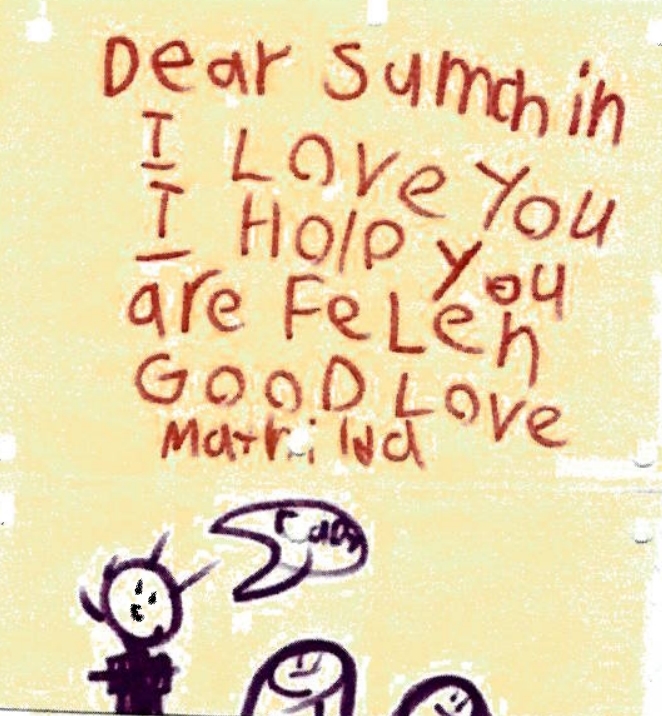 Dear Sumchin
I Love You
I Holp you
are FeLeh
GOOD LOve